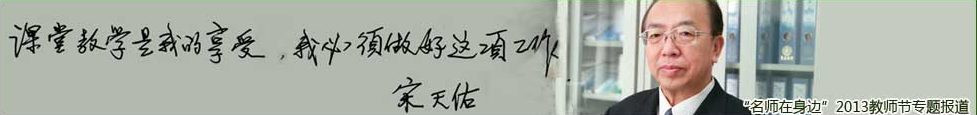 课堂教学是我的享受，我必须做好这项工作
宋天佑
“名师在身边”2013教师节专题报道